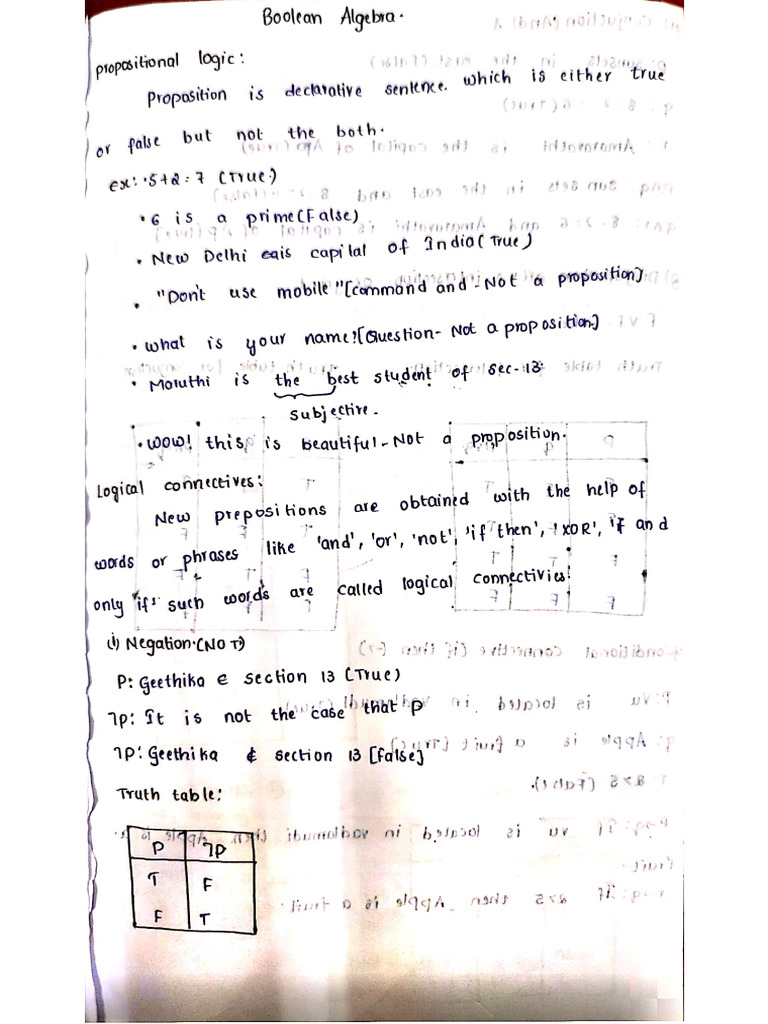 Boolean Algebra.
propositional logic:
Proposition is declarative sentence. which is either true
or false but not the both.
ex: .5+2=7 (True.)
• 6 is a prime(False)
• New Delhi is capital of India(True)
• "Don't use mobile"[command and - Not a proposition]
• what is your name?[Question- Not a proposition.]
• Maruthi is the best student of sec-13.
subjective.
• wow! this is beautiful - Not a proposition.
Logical connectives:
New prepositions are obtained with the help of
words or phrases like 'and', 'or', 'not', 'if then', 'XOR', if and
only if' such words are called logical connectivies:
(i) Negation.(NOT)
P: Geethika ∈ section 13 (True)
¬p: It is not the case that P
¬P: Geethika ∉ section 13 [false]
Truth table:
P ¬P
T F
F T